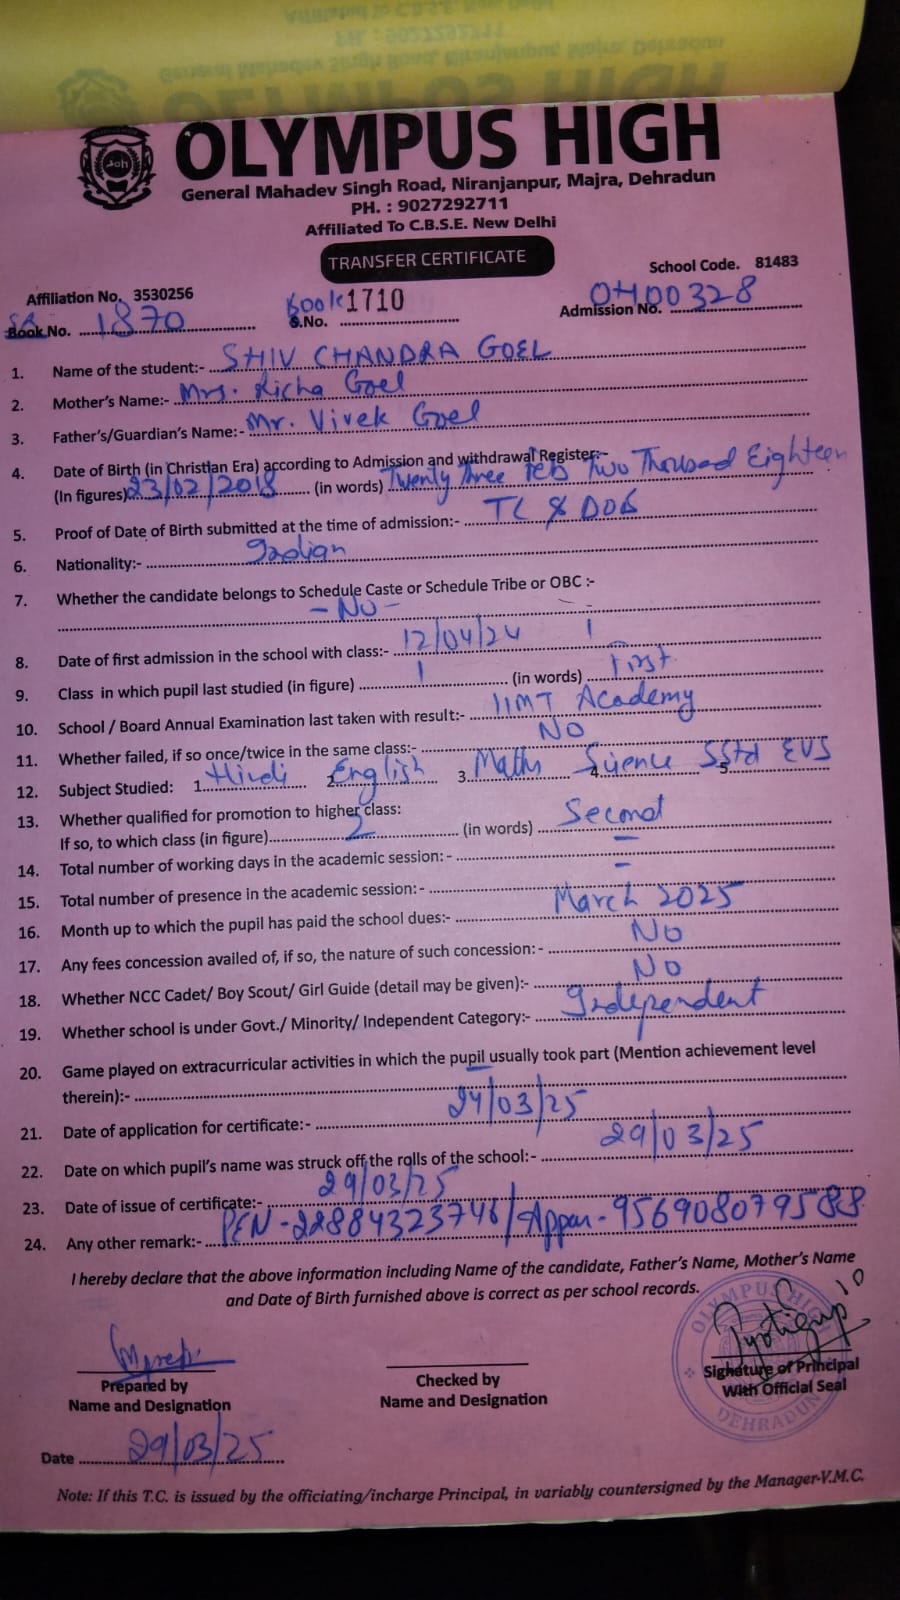 OLYMPUS HIGH
General Mahadev Singh Road, Niranjanpur, Majra, Dehradun
PH. : 9027292711
Affiliated To C.B.S.E. New Delhi
TRANSFER CERTIFICATE
School Code. 81483
Affiliation No. 3530256
Book No. 1870 Book S.No. 1710 Admission No. 0400328
1. Name of the student:- SHIV CHANDRA GOEL
2. Mother's Name:- Mrs. Richa Goel
3. Father's/Guardian's Name:- Mr. Vivek Goel
4. Date of Birth (in Christian Era) according to Admission and withdrawal Register:-
(In figures) 23/02/2018 (in words) Twenty Three Feb Two Thousad Eighteen
5. Proof of Date of Birth submitted at the time of admission:- TC & DOB
6. Nationality:- Indian
7. Whether the candidate belongs to Schedule Caste or Schedule Tribe or OBC :-
- No -
8. Date of first admission in the school with class:- 12/04/24 1
9. Class in which pupil last studied (in figure) 1 (in words) First
10. School / Board Annual Examination last taken with result:- IIMT Academy
11. Whether failed, if so once/twice in the same class:- No
12. Subject Studied: 1. Hindi 2. English 3. Maths 4. Science 5. SStd EVS
13. Whether qualified for promotion to higher class:
If so, to which class (in figure) 2 (in words) Second
14. Total number of working days in the academic session: - –
15. Total number of presence in the academic session: - –
16. Month up to which the pupil has paid the school dues:- March 2025
17. Any fees concession availed of, if so, the nature of such concession: - No
18. Whether NCC Cadet/ Boy Scout/ Girl Guide (detail may be given):- No
19. Whether school is under Govt./ Minority/ Independent Category:- Independent
20. Game played on extracurricular activities in which the pupil usually took part (Mention achievement level
therein):-
21. Date of application for certificate:- 24/03/25
22. Date on which pupil's name was struck off the rolls of the school:- 29/03/25
23. Date of issue of certificate:- 29/03/25
24. Any other remark:- PEN - 22884323746/Appar - 956908079588
I hereby declare that the above information including Name of the candidate, Father's Name, Mother's Name
and Date of Birth furnished above is correct as per school records.
OLYMPUS HIGH
DEHRADUN
Prepared by
Name and Designation
Checked by
Name and Designation
Signature of Principal
With Official Seal
Date 29/03/25
Note: If this T.C. is issued by the officiating/incharge Principal, in variably countersigned by the Manager-V.M.C.